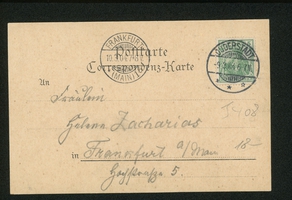 FRANKFURT
(MAIN) 1
Postkarte
Correspondenz-Karte
DUDERSTADT
An
Fräulein
Helene Zacharias
in Frankfurt a/Main
Hochstrasse 5.
18-